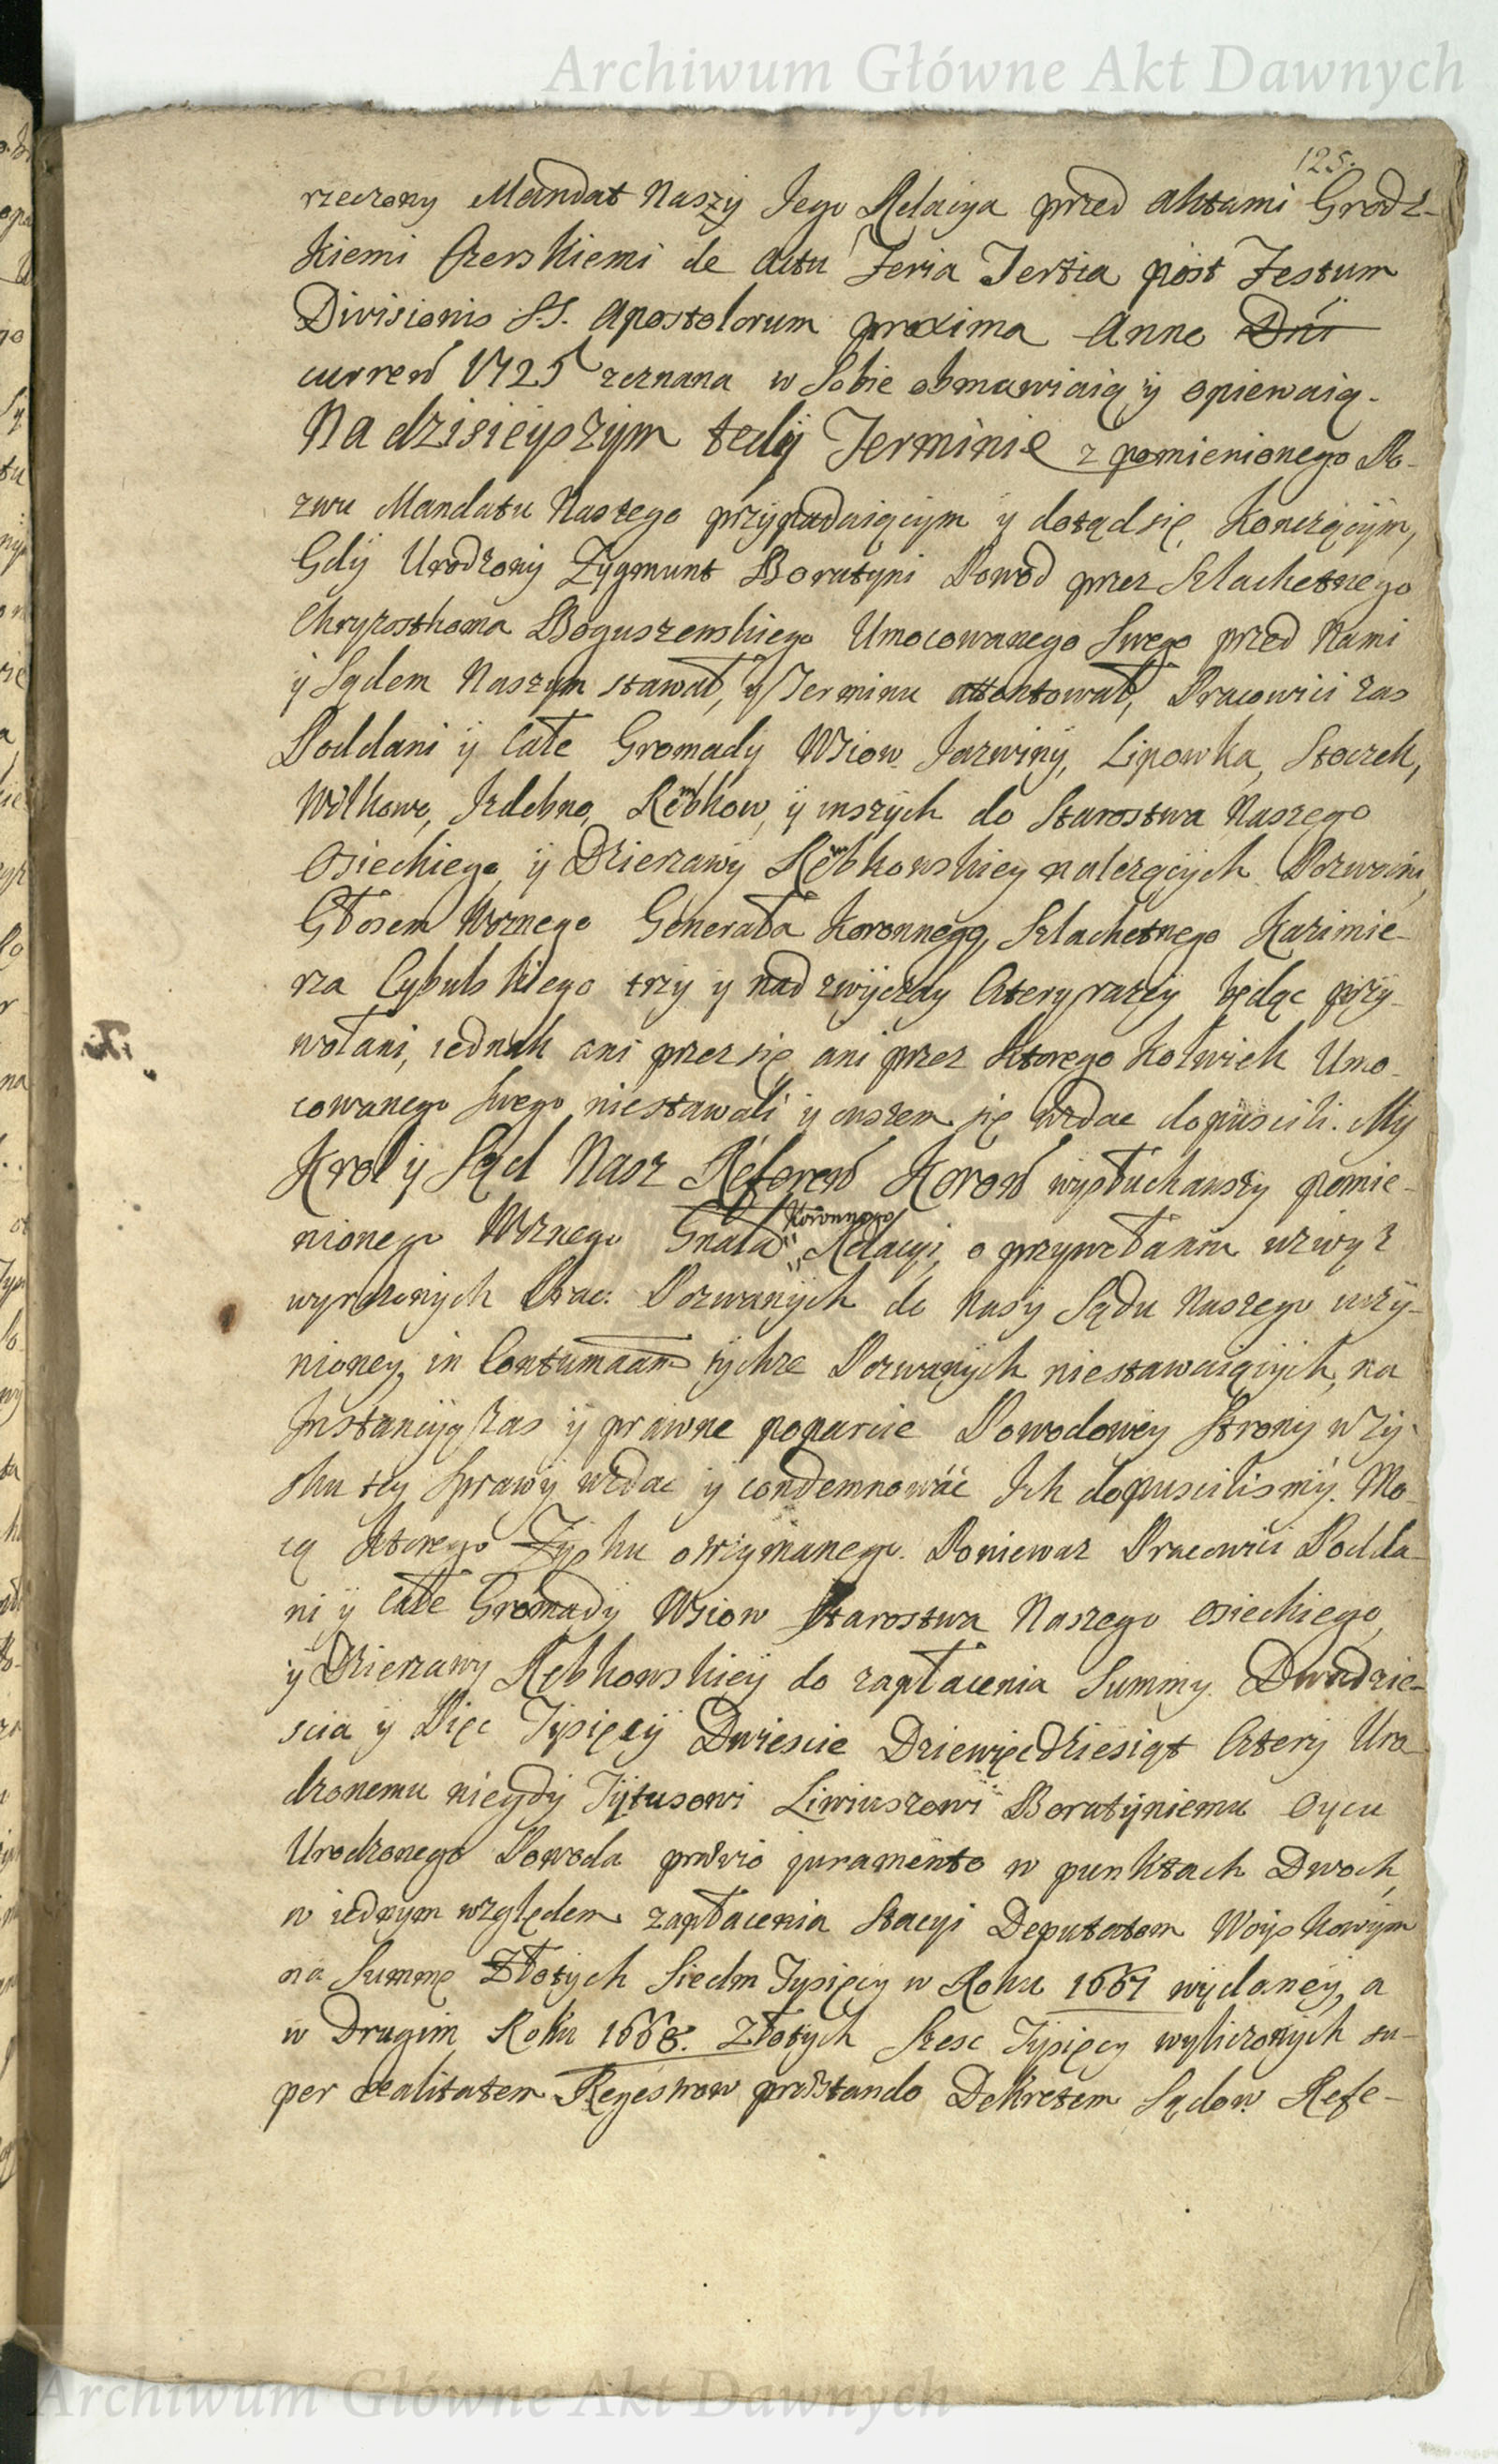 Archiwum Główne Akt Dawnych
125.
rzeczony Mandat Naszy Jego Relacya przed Aktami Grodz-
kiemi Czerskiemi de Actu Feria Tertia post Festum
Divisionis S.S. Apostolorum proxima Anno Dni
curren 1725 zeznana w Sobie obmawiaią y opiewaią.
Na dzisieyszym tedy Terminie z pomienionego Po-
zwu Mandatu Naszego przypadaiącym y dotąd się kończącym,
Gdy Urodzony Zygmunt Boratyni Powod przez Szlachetnego
Chryzosthoma Boguszewskiego Umocowanego Swego przed Nami
y Sądem Naszym stawał, y Terminu attentował, Pracowici zas
Poddani y Całe Gromady Wsiow Jazwiny, Lipowka, Stoczek,
Wilkowe, Izdebno, Rębkow, y inszych do Starostwa Naszego
Osieckiego y Dzierzawy Rębkowskiey należących Pozwani,
Głosem Woznego Generała Koronnego, Szlachetnego Kazimie-
rza Cybulskiego trzy y nad zwyczay Cztery razy będąc przy-
wołani, iednak ani przez się ani przez ktorego kolwiek Umo-
cowanego swego niestawali y owszem się wzdac dopuscili. My
Krol y Sąd Nasz Referen Koron wysłuchawszy pomie-
nionego Woznego Gnała Koronnego Relacyi, o przywołaniu wzwyż
wyrazonych Prac. Pozwanych do Nas y Sądu Naszego uczy-
nioney, in Contumaciam tychze Pozwanych niestawaiących, na
Instancyą zas y prawne poparcie Powodowey Strony w Zy-
sku tey Sprawy wzdac y condemnowáć Ich dopuscilismy. Mo-
cą ktorego Zysku otrzymanego. Poniewaz Pracowici Podda-
ni y Całe Gromady Wsiow Starostwa Naszego Osieckiego
y Dzierzawy Rębkowskiey do zapłacenia Summy Dwudzie-
scia y Pięc Tysięcy Dwiescie Dziewięcdziesiąt Cztery Uro-
dzonemu niegdy Tytusowi Liwiuszowi Boratyniemu Oycu
Urodzonego Powoda prævio juramento w punktach Dwoch,
w iednym względem zapłacenia Stacyi Deputatom Woyskowym
na Summę Złotych Siedm Tysięcy w Roku 1667 wydaney, a
w Drugim Roku 1668. Złotych Szesc Tysięcy wyliczonych su-
per realitatem Regestrow præstando Dekretem Sądow Refe-
Archiwum Główne Akt Dawnych